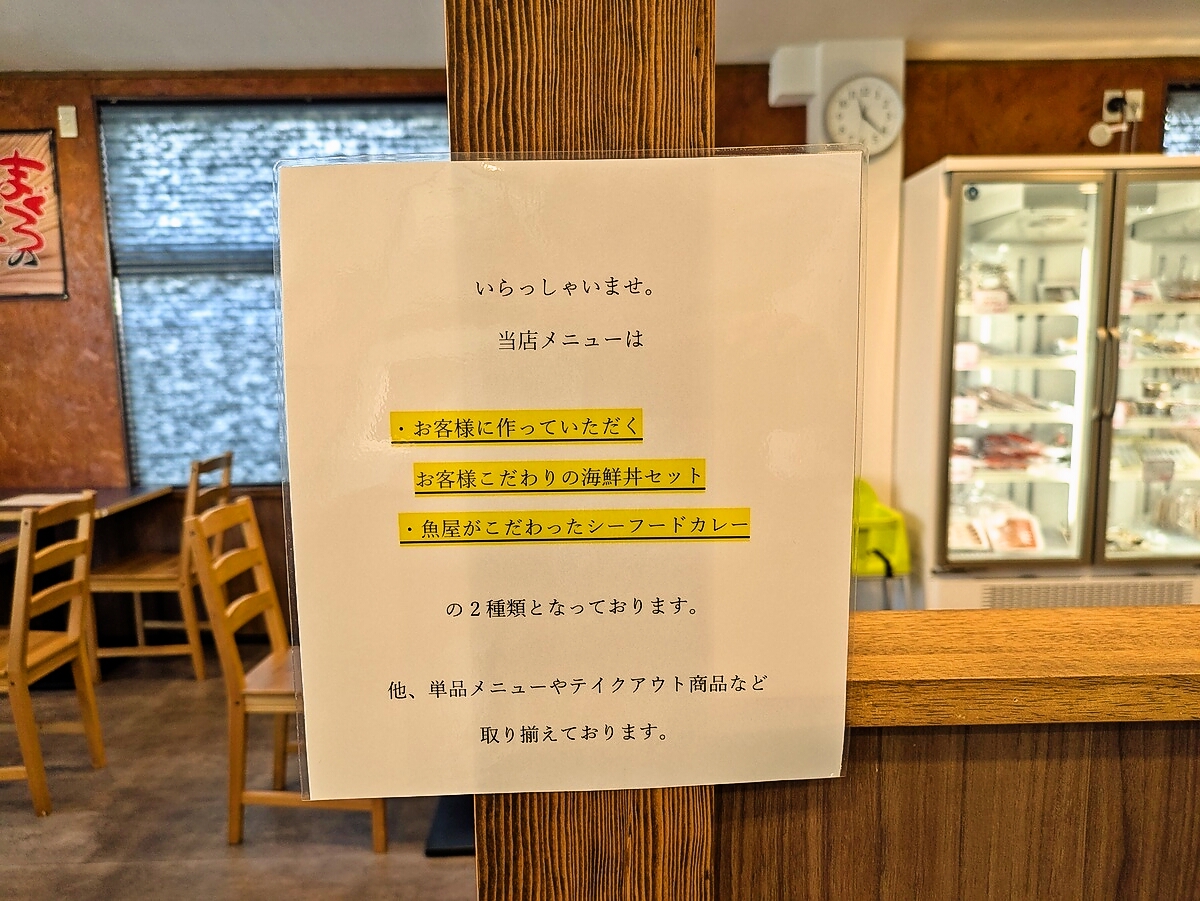 いらっしゃいませ。
当店メニューは
・お客様に作っていただく
お客様こだわりの海鮮丼セット
・魚屋がこだわったシーフードカレー
の２種類となっております。
他、単品メニューやテイクアウト商品など
取り揃えております。
まぐろの